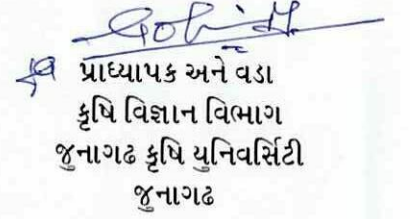 પ્રાધ્યાપક અને વડા
કૃષિ વિજ્ઞાન વિભાગ
જુનાગઢ કૃષિ યુનિવર્સિટી
જુનાગઢ